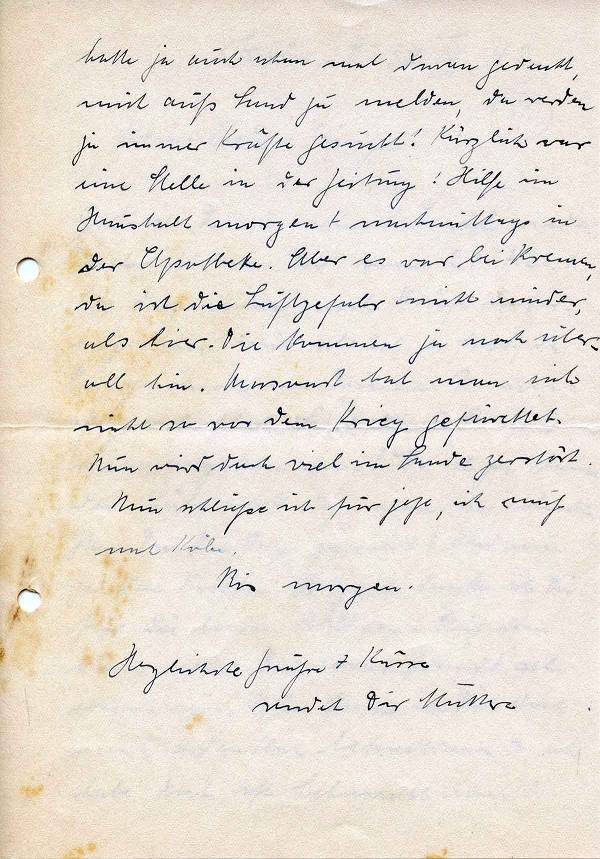 hatte ja auch schon mal daran gedacht,
mich aufs Land zu melden, da werden
ja immer Kräfte gesucht! Kürzlich war
eine Stelle in der Zeitung! Hilfe im
Haushalt morgen + nachmittags in
der Apotheke. Aber es war bei Bremen,
da ist die Luftgefahr nicht minder,
als hier. Die kommen ja noch über-
all hin. hat man sich
nicht so vor dem Krieg gefürchtet.
Nun wird doch viel im Lande zerstört.
Nun schließe ich für jetzt, ich muß
nach
Bis morgen.
Herzlichste Grüße + Küsse
sendet Dir Mutter